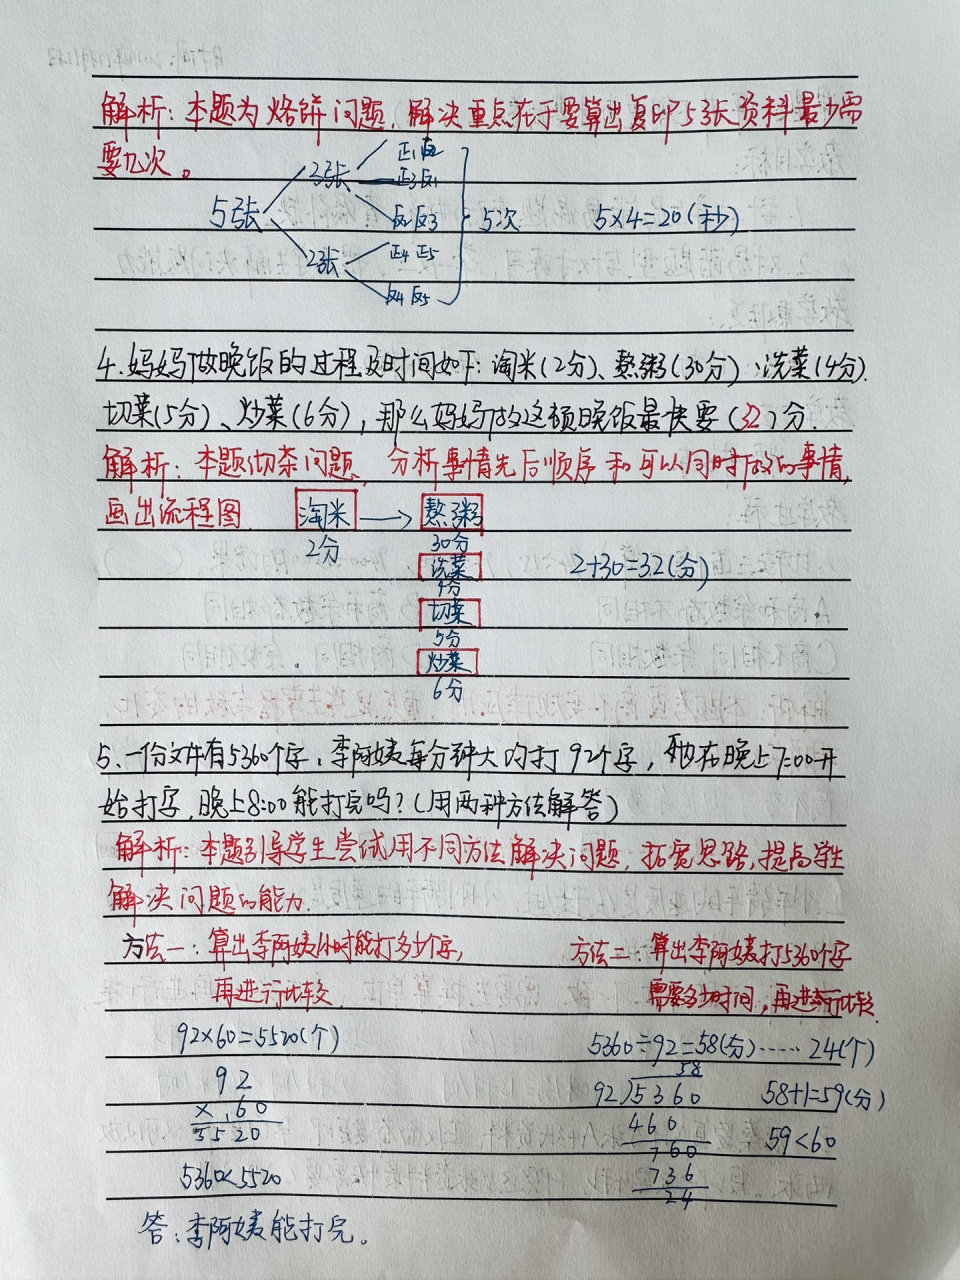 解析：本题为烙饼问题，解决重点在于要算出复印5张资料最少需
要几次。
正1反2
3张 正3反1
5张 反2反3 5次 5×4=20(秒)
2张 正4 正5
反4 反5
4.妈妈做晚饭的过程及时间如下：淘米(2分)、熬粥(30分)、洗菜(4分)
切菜(5分)、炒菜(6分)，那么妈妈做这顿晚饭最快要(32)分.
解析：本题沏茶问题，分析事情先后顺序和可以同时做的事情，
画出流程图. 淘米 → 熬粥
2分 30分
洗菜 2+30=32(分)
4分
切菜
5分
炒菜
6分
5.一份文件有5360个字，李阿姨每分钟大约打92个字，她在晚上7:00开
始打字，晚上8:00能打完吗？(用两种方法解答)
解析：本题引导学生尝试用不同方法解决问题，拓宽思路，提高学生
解决问题的能力.
方法一：算出李阿姨1小时能打多少个字， 方法二：算出李阿姨打5360个字
再进行比较. 需要多少时间，再进行比较.
92×60=5520(个) 5360÷92=58(分)······24(个)
58
92 92)5360 58+1=59(分)
×60 460 59<60
5520 760
5360<5520 736
24
答：李阿姨能打完。